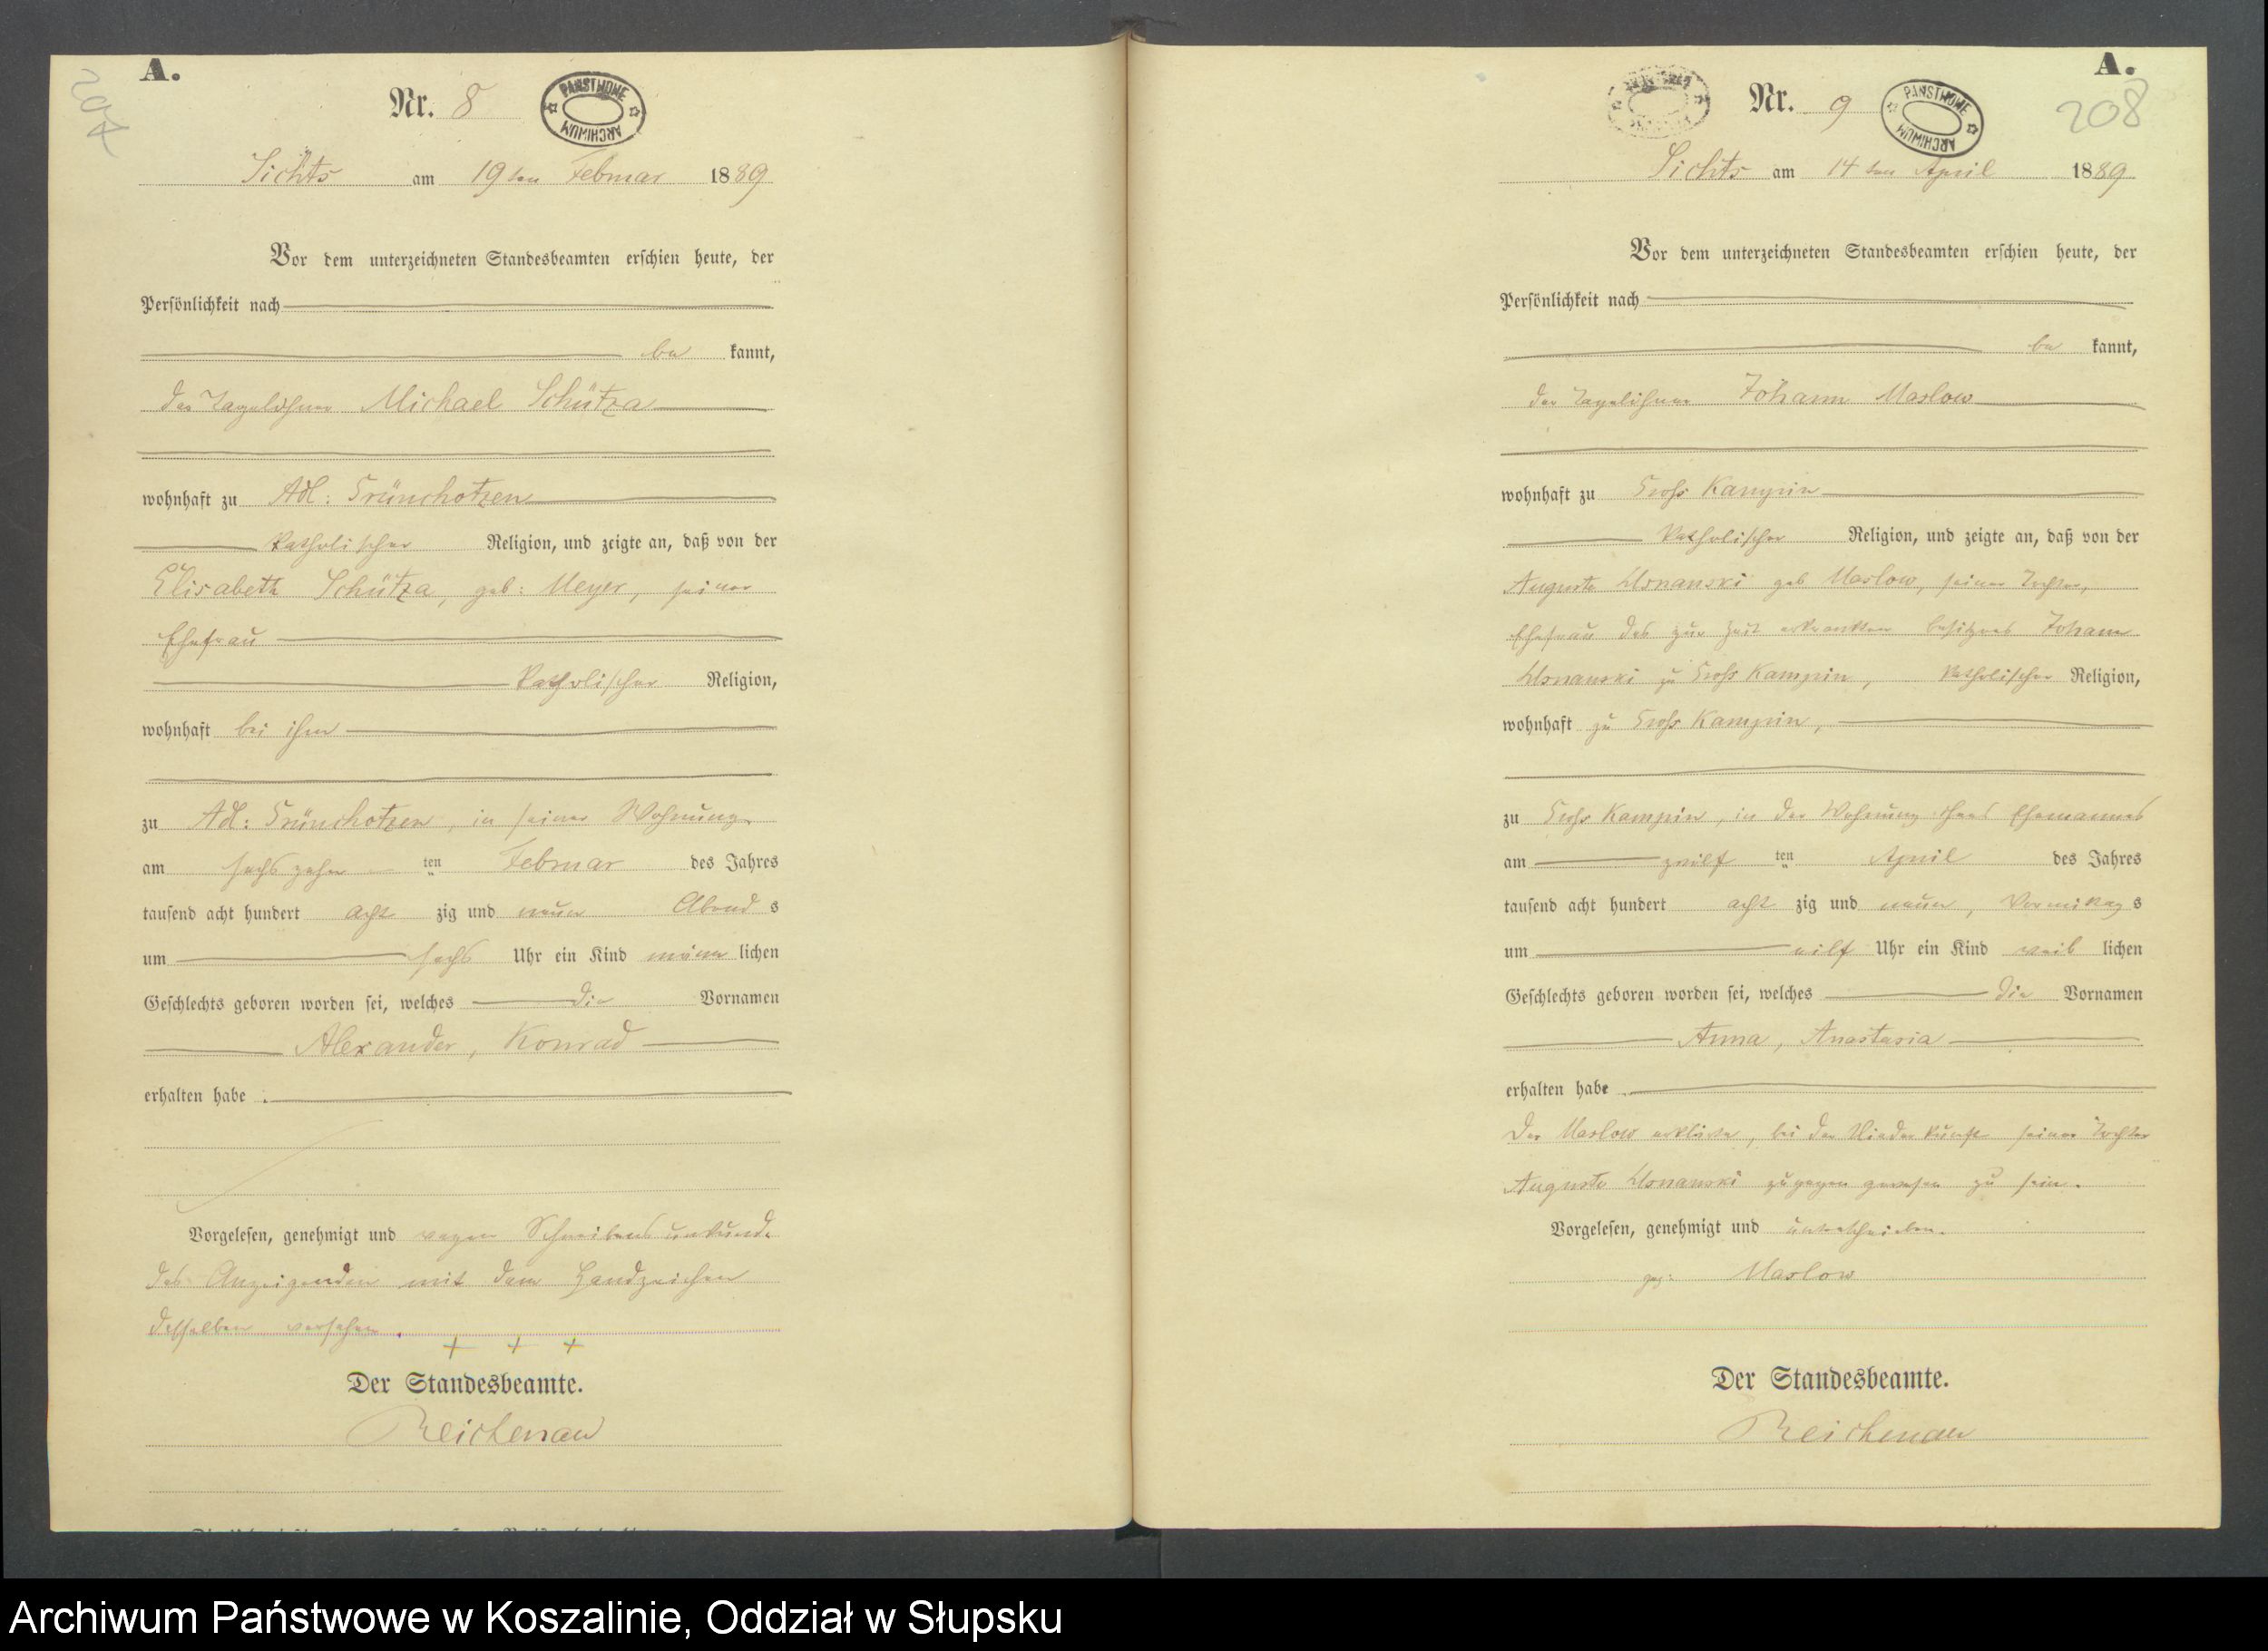 A.
207
Nr. 8
PAŃSTWOWE ARCHIWUM
Sichts am 19ten Februar 1889
Vor dem unterzeichneten Standesbeamten erschien heute, der
Persönlichkeit nach
be kannt,
der Tagelöhner Michael Schütza
wohnhaft zu Adl: Grünchotzen
katholischer Religion, und zeigte an, daß von der
Elisabeth Schütza, geb: Meyer, seiner
Ehefrau
katholischer Religion,
wohnhaft bei ihm
zu Adl: Grünchotzen, in seiner Wohnung
am sechszehn ten Februar des Jahres
tausend acht hundert acht zig und neun Abend s
um sechs Uhr ein Kind männ lichen
Geschlechts geboren worden sei, welches die Vornamen
Alexander, Konrad
erhalten habe .
Vorgelesen, genehmigt und wegen Schreibensunkunde
des Anzeigenden mit dem Handzeichen
desselben versehen.
+ + +
Der Standesbeamte.
Reichenau
A.
208
Nr. 9
PAŃSTWOWE ARCHIWUM
Sichts am 14ten April 1889
Vor dem unterzeichneten Standesbeamten erschien heute, der
Persönlichkeit nach
be kannt,
der Tagelöhner Johann Maslow
wohnhaft zu Gross Kampin
katholischer Religion, und zeigte an, daß von der
Auguste geb Maslow, seiner Tochter,
Ehefrau des zur Zeit erkrankten Besitzers Johann
zu Gross Kampin, katholischer Religion,
wohnhaft zu Gross Kampin,
zu Gross Kampin, in der Wohnung ihres Ehemannes
am zwölf ten April des Jahres
tausend acht hundert acht zig und neun, Vormittag s
um eilf Uhr ein Kind weib lichen
Geschlechts geboren worden sei, welches die Vornamen
Anna, Anastasia
erhalten habe .
Der Maslow erklärte, bei der Niederkunft seiner Tochter
Auguste zugegen gewesen zu sein.
Vorgelesen, genehmigt und unterschrieben.
gez: Maslow
Der Standesbeamte.
Reichenau
Archiwum Państwowe w Koszalinie, Oddział w Słupsku